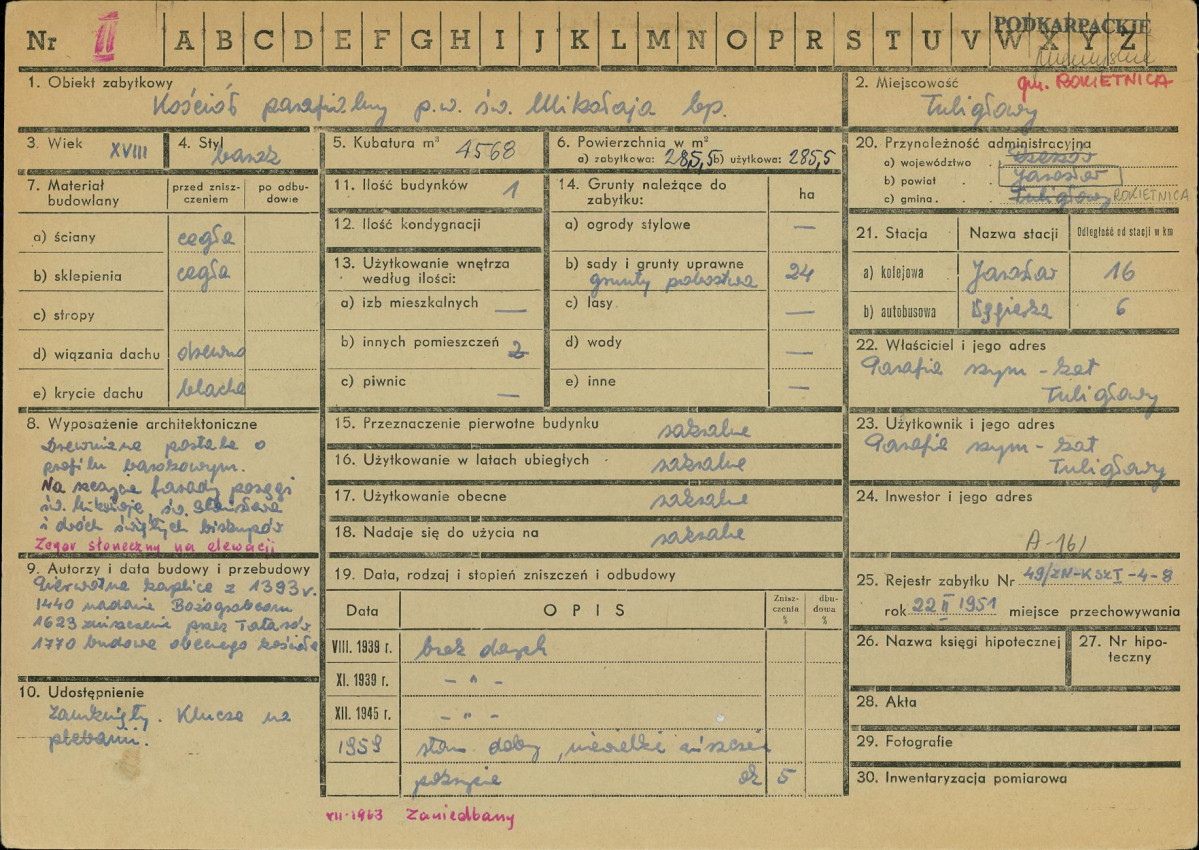 Nr II A B C D E F G H I J K L M N O P R S T U V W X Y Z
PODKARPACKIE
1. Obiekt zabytkowy
Kościół parafialny p.w. św. Mikołaja bp.
2. Miejscowość
gm. ROKIETNICA
Tuligłowy
3. Wiek XVIII
4. Styl barok
5. Kubatura m³ 4568
6. Powierzchnia w m²
a) zabytkowa: 285,5 b) użytkowa: 285,5
20. Przynoleżność administracyjna
a) województwo
b) powiat Jarosław
c) gmina Tuligłowy ROKIETNICA
7. Materiał budowlany
przed zniszczeniem
po odbudowie
a) ściany cegła
b) sklepienia cegła
c) stropy
d) wiązania dachu drewno
e) krycie dachu blacha
11. Ilość budynków 1
12. Ilość kondygnacji
13. Użytkowanie wnętrza według ilości:
a) izb mieszkalnych —
b) innych pomieszczeń 2
c) piwnic —
14. Grunty należące do zabytku:
ha
a) ogrody stylowe —
b) sady i grunty uprawne 24
grunty probostwa
c) lasy —
d) wody —
e) inne —
21. Stacja
Nazwa stacji
Odległość od stacji w km
a) kolejowa Jarosław 16
b) autobusowa Węgierka 6
22. Właściciel i jego adres
Parafia rzym - kat
Tuligłowy
8. Wyposażenie architektoniczne
Drewniane portale o
profilu barokowym.
Na szczycie fasady posągi
św. Mikołaja, św. Stanisława
i dwóch świętych biskupów
Zegar słoneczny na elewacji
15. Przeznaczenie pierwotne budynku sakralne
16. Użytkowanie w latach ubiegłych sakralne
17. Użytkowanie obecne sakralne
18. Nadaje się do użycia na sakralne
23. Użytkownik i jego adres
Parafia rzym - kat
Tuligłowy
24. Inwestor i jego adres
A-161
9. Autorzy i data budowy i przebudowy
Pierwotna kaplica z 1393 r.
1440 nadanie Bożogrobcom
1623 zniszczenie przez Tatarów
1770 budowa obecnego kościoła
19. Data, rodzaj i stopień zniszczeń i odbudowy
Data
OPIS
Zniszczenia %
dbudowa %
VIII. 1939 r. brak danych
XI. 1939 r. - " -
XII. 1945 r. - " -
1959 stan dobry, niewielkie zniszczenie
pokrycia ok 5
25. Rejestr zabytku Nr 49/ZN-KSZT-4-8
rok 22 II 1951 miejsce przechowywania
26. Nazwa księgi hipotecznej
27. Nr hipoteczny
10. Udostępnienie
Zamknięty. Klucze na
plebanii.
28. Akta
29. Fotografie
30. Inwentaryzacja pomiarowa
VII-1963 Zaniedbany